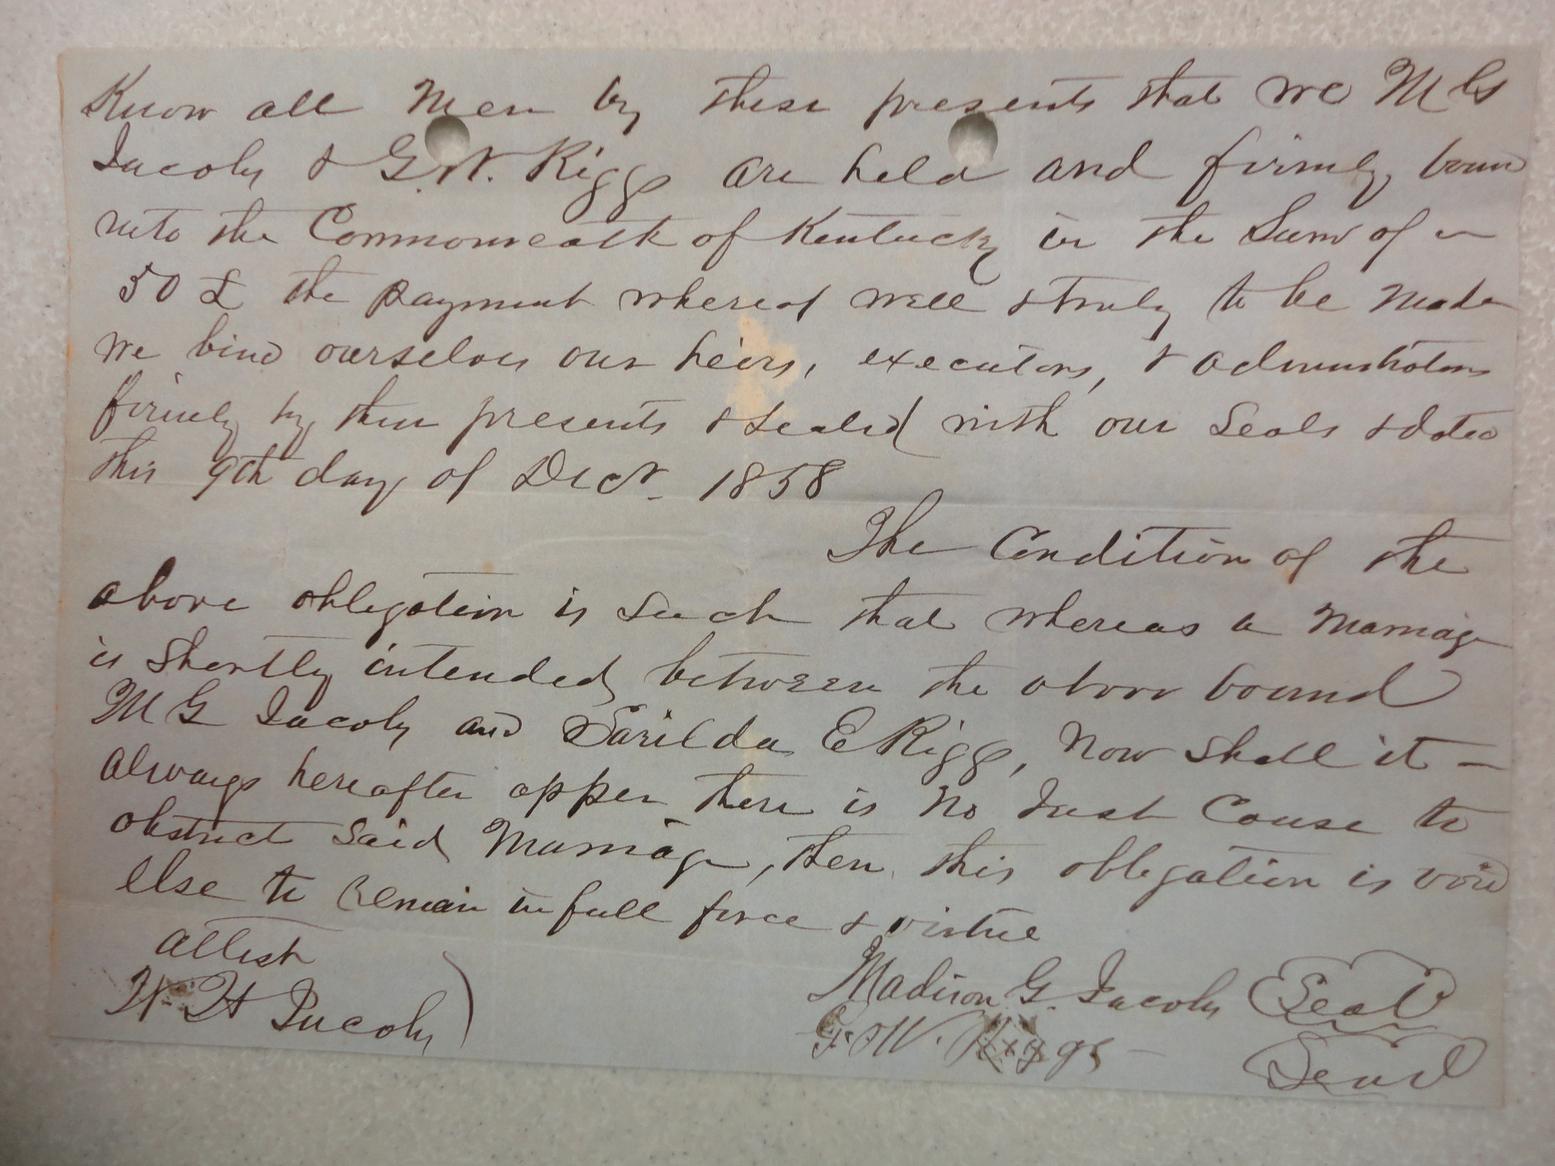 Know all Men by these presents that we M G
Jacoby & G. W. Riggs are held and firmly boun
unto the Commonwealth of Kentucky in the Sum of
50 £ the payment whereof well & truly to be made
We bind ourselves our heirs, executors, & administrators
firmly by these presents & sealed with our Seals & dated
this 9th day of Decr. 1858
The Condition of the
above obligation is such that whereas a Marriage
is shortly intended between the above bound
M G Jacoby and Sarilda E Riggs, Now shall it -
always hereafter apper there is No Just Cause to
obstruct said Marriage, then this obligation is void
else to remain in full force & virtue
attest
W H Jacoby )
Madison G. Jacoby Seal
G W. Riggs - Seal